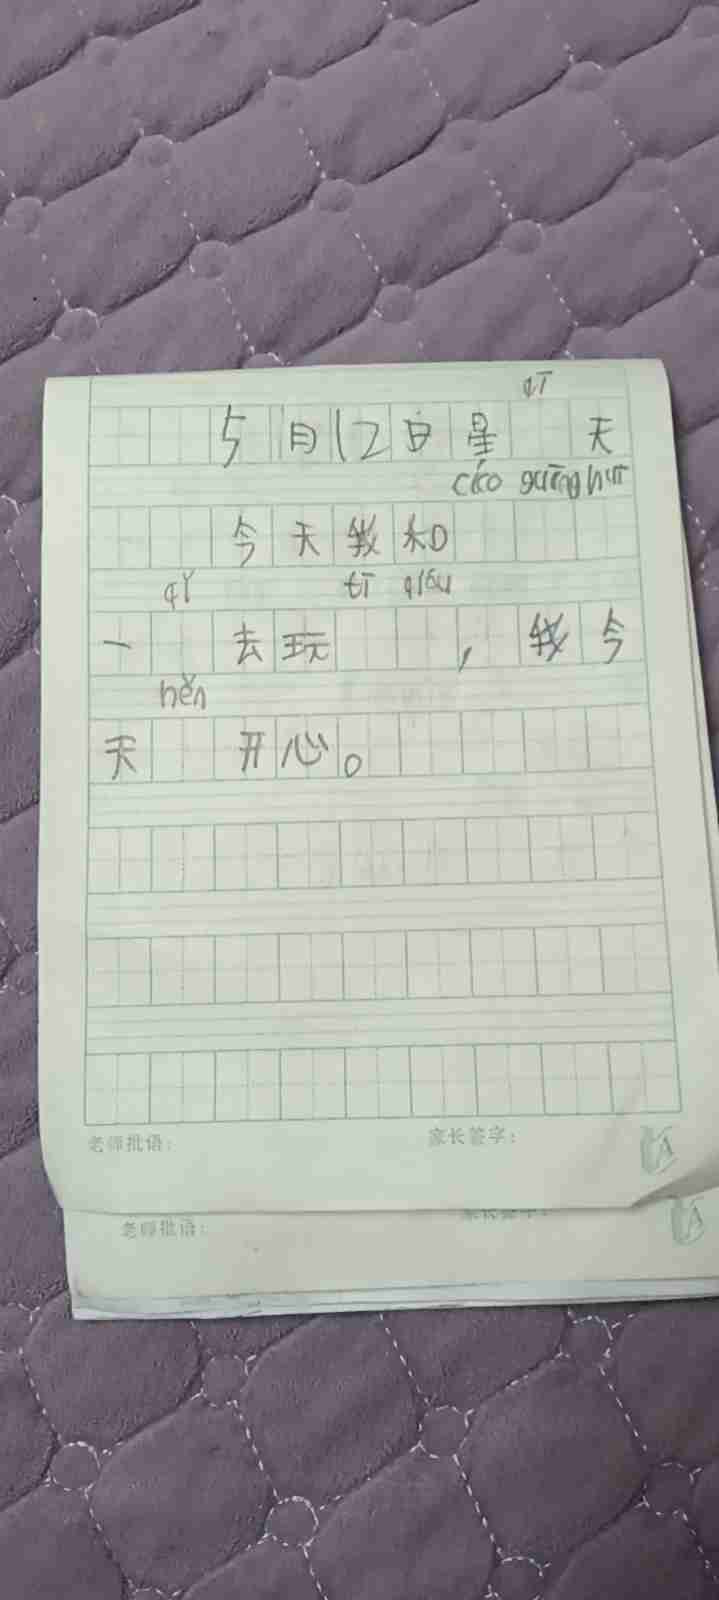 qī
5月12日星 天
cáo guāng huī
今天我和
qǐ tī qíu
一 去玩 ，我今
hěn
天 开心。
老师批语：
家长签字：
老师批语：
家长签字：